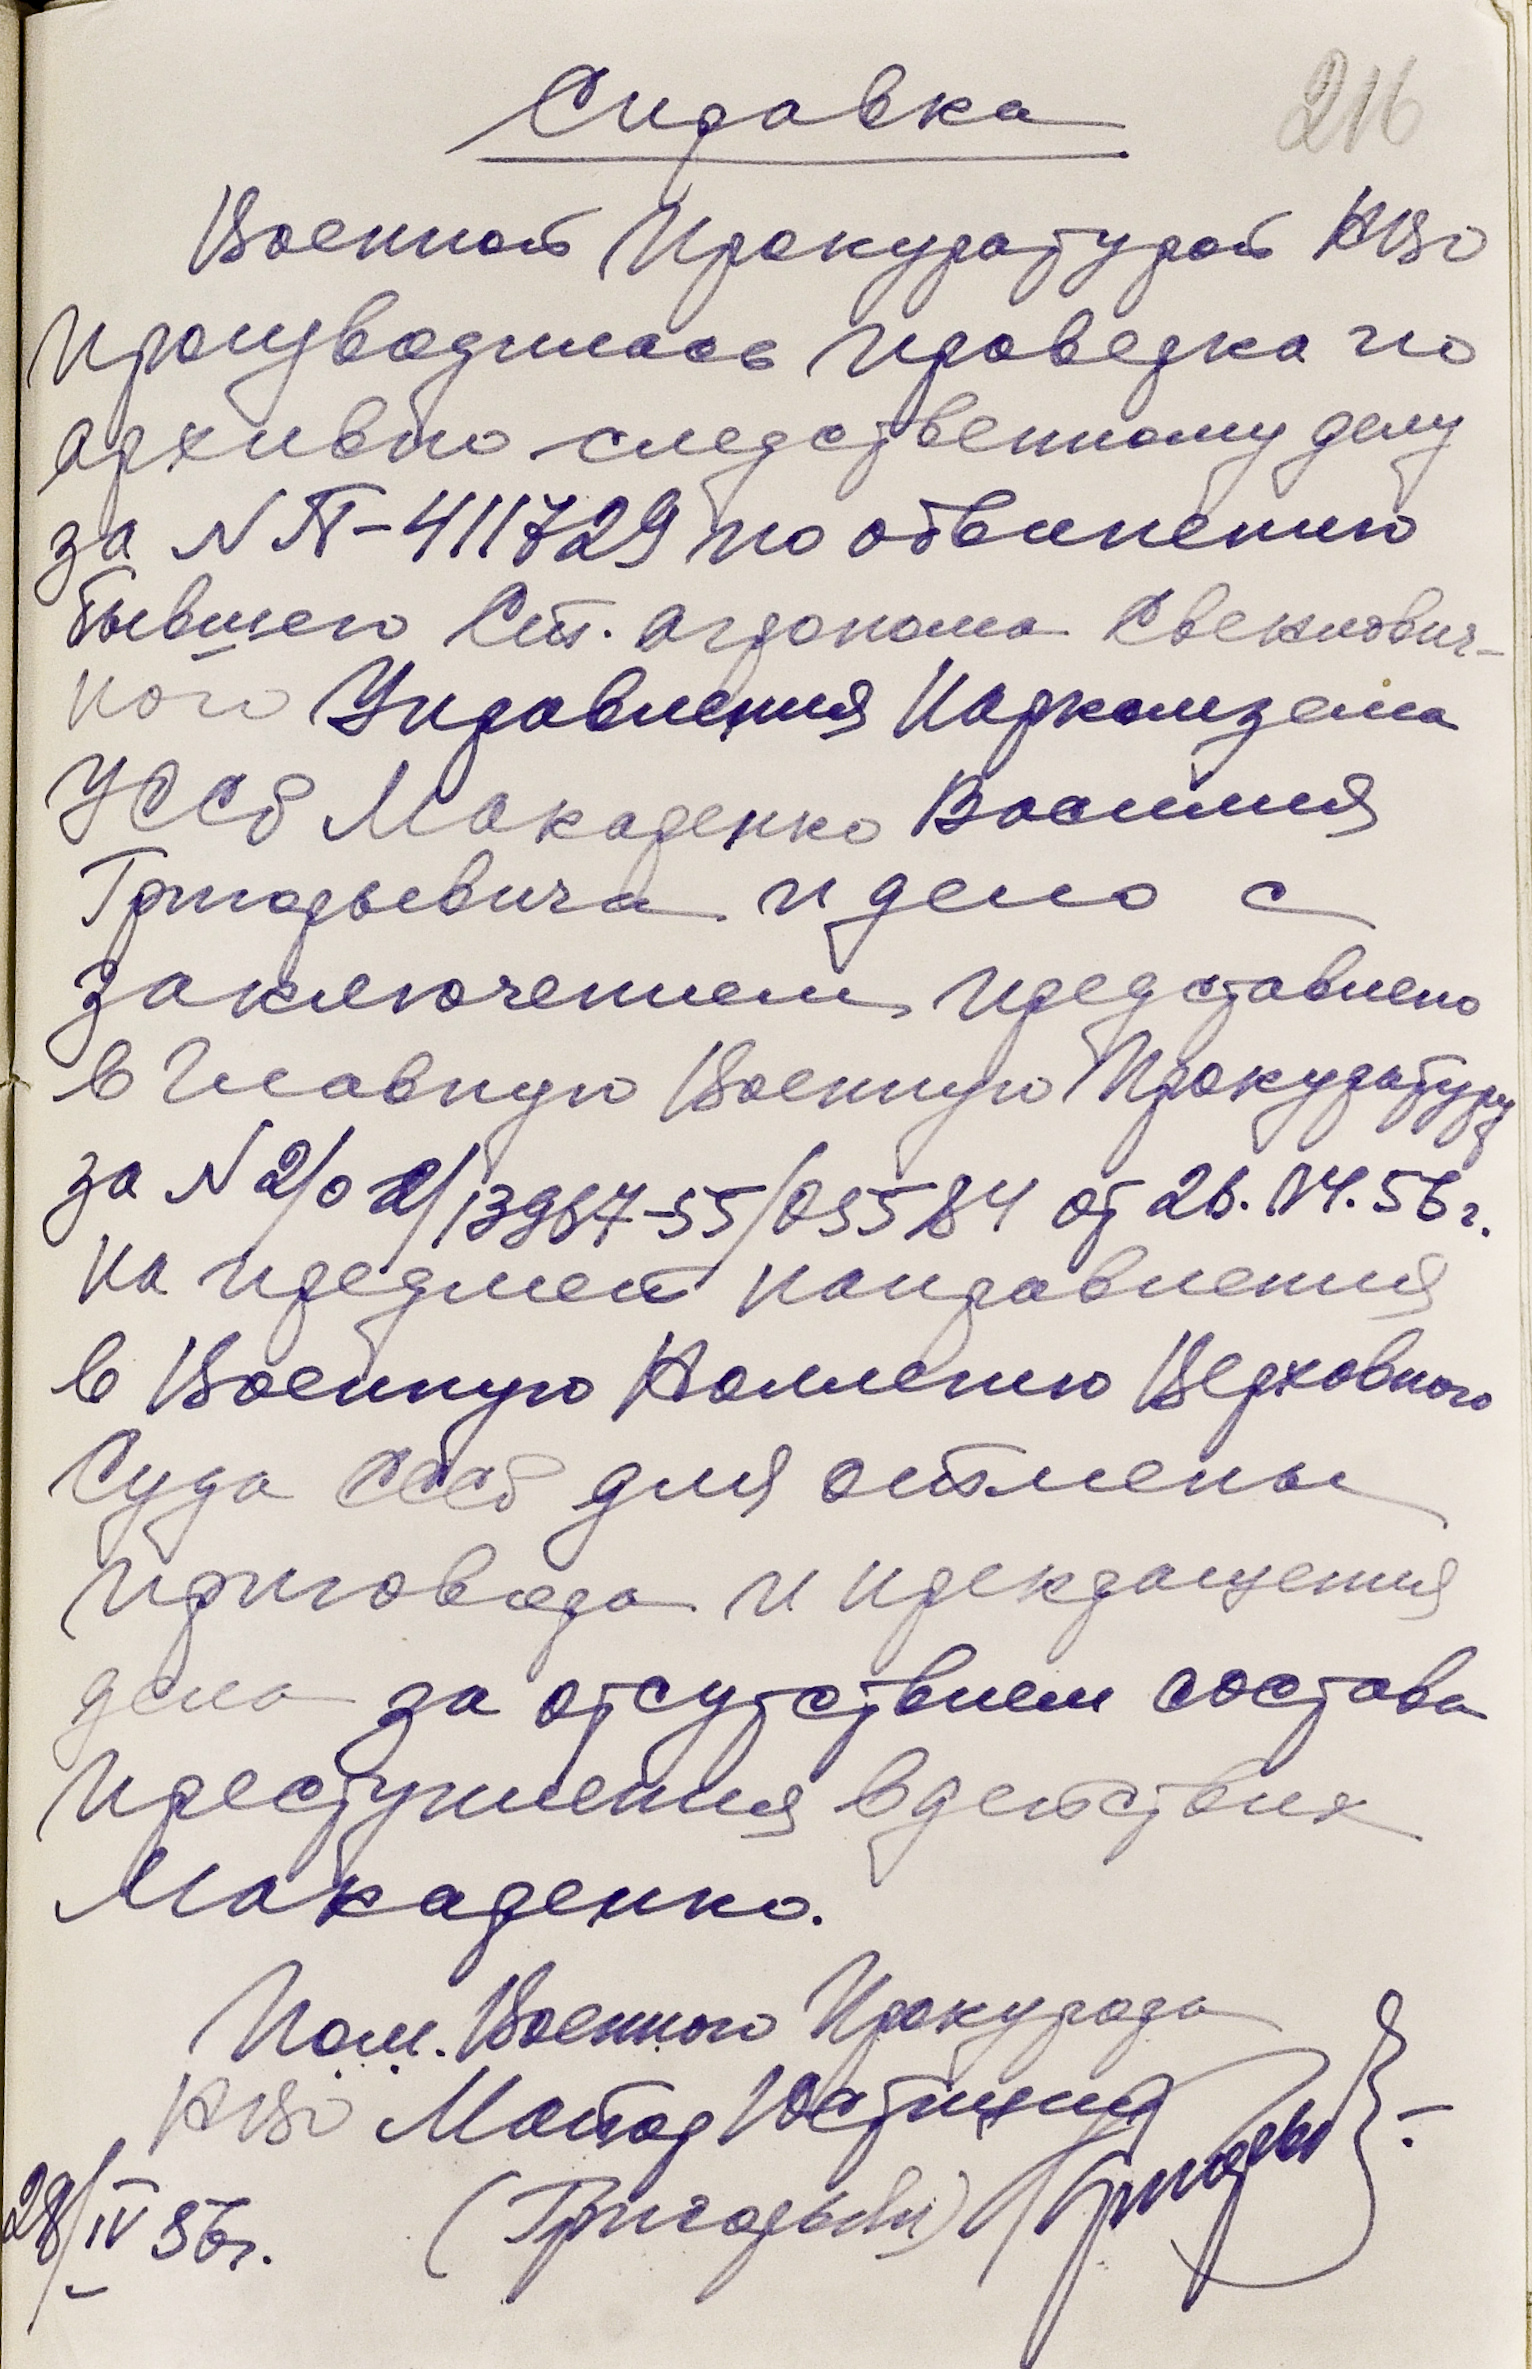 Справка
216
Военной Прокуратурой КВО
производилась проверка по
архивно-следственному делу
за № П-411729 по обвинению
бывшего Ст. агронома Свеклович-
ного Управления Наркомзема
УССР Макаренко Василия
Григорьевича и дело с
заключением представлено
в Главную Военную Прокуратуру
за № от 26.IV.56 г.
на предмет направления
в Военную Коллегию Верховного
Суда СССР для отмены
приговора и прекращения
дела за отсутствием состава
преступления в действиях
Макаренко.
Пом. Военного Прокурора
КВО Майор Юстиции
(Григорьев)
28/IV 56г.